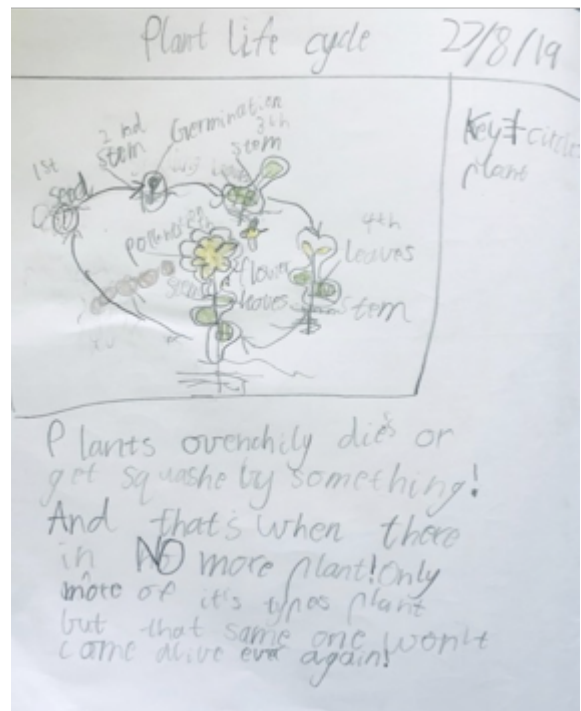 Plant life cycle
27/8/19
Key
circle
plant
1st
seed
2nd
stem
Germination
3th
stem
4th
leaves
stem
flower
leaves
Plants ovenchily die's or
get squashe by something!
And that's when there
in NO more plant! Only
more of it's types plant
but that same one won't
come alive ever again!